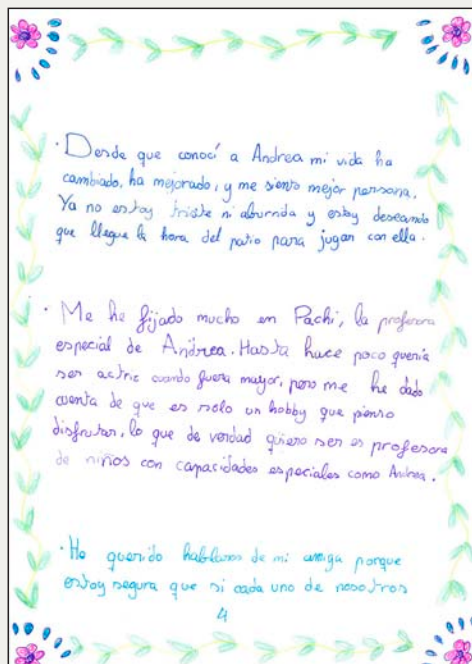 · Desde que conocí a Andrea mi vida ha
cambiado, ha mejorado, y me siento mejor persona.
Ya no estoy triste ni aburrida y estoy deseando
que llegue la hora del patio para jugar con ella.
· Me he fijado mucho en Pachi, la profesora
especial de Andrea. Hasta hace poco quería
ser actriz cuando fuera mayor, pero me he dado
cuenta de que es solo un hobby que pienso
disfrutar, lo que de verdad quiero ser es profesora
de niños con capacidades especiales como Andrea.
· He querido hablaros de mi amiga porque
estoy segura que si cada uno de nosotros
4